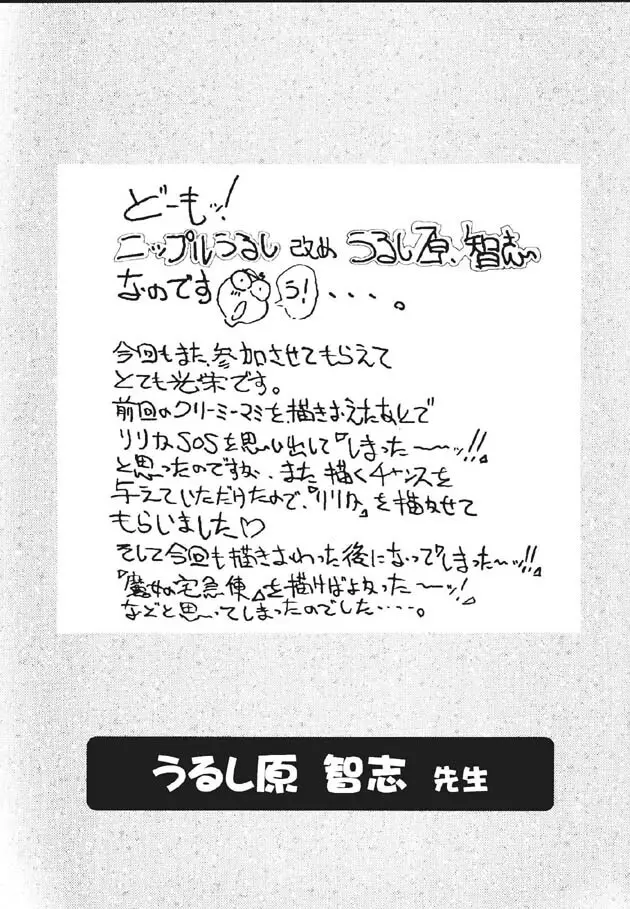 どーもッ!
ニップルうるし 改め うるし原、智志〜
なのです う!・・・。
今回もまた、参加させてもらえて
とても光栄です。
前回のクリーミーマミを、描きおえたあとで
リリカSOSを思い出して『しまった〜〜ッ!!』
と思ったのですが、また描くチャンスを
与えていただけたので、『リリカ』を描かせて
もらいました♡
そして今回も描きおわった後になって『しまった〜ッ!!
『魔女の宅急便』を描けばよかった〜ッ!』
などと思ってしまったのでした・・・・。
うるし原 智志 先生